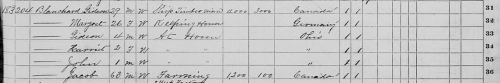 153 204 Blanchard Gideon 29 m W Ship Timberman 4000 300 Canada 1 1 31
—— Margret 26 F W Keeping House Germany 1 1 32
—— Gideon 4 m W At Home Ohio 33
—— Harriet 2 F W " " 34
—— John 1 m W " " 35
—— Jacob 63 m W Farming 1200 100 Canada 1 1 36